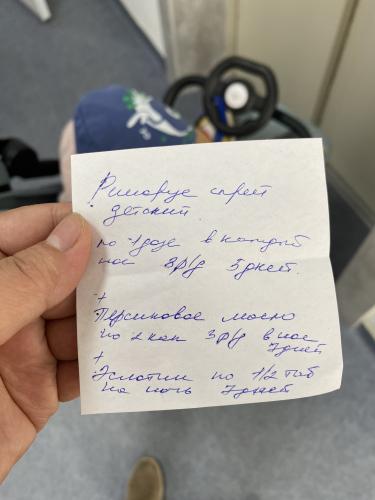 Ринорус спрей
детский
по 1 дозе в каждый
нос 3р/д 5 дней.
+
Персиковое масло
по 2 кап 3р/д в нос
7 дней
+
Эслотин по 1/2 таб
на ночь 7 дней